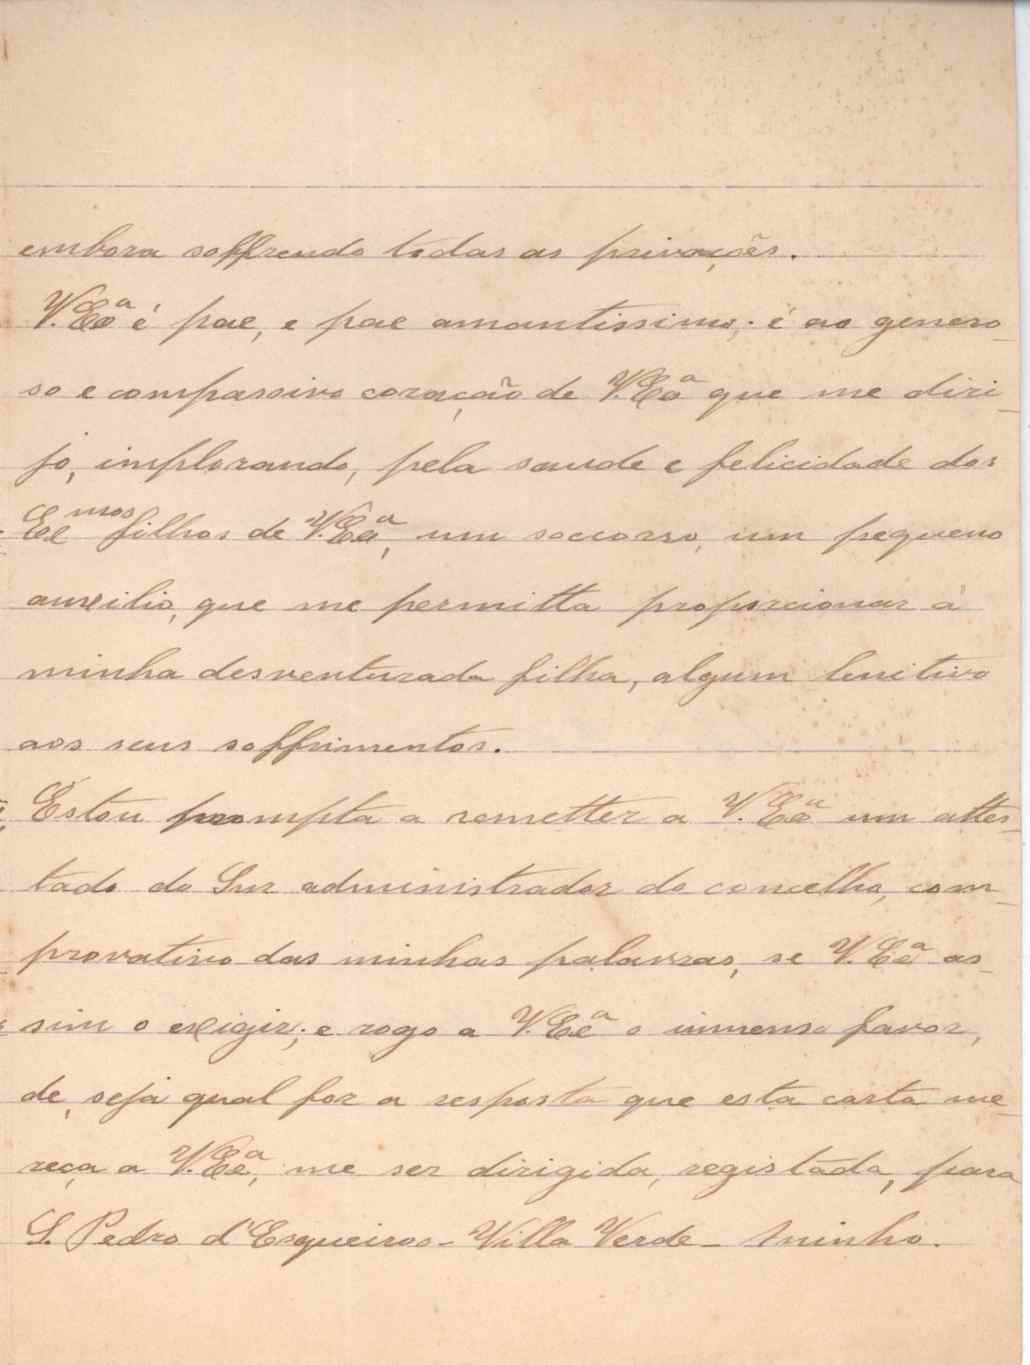 embora soffrendo todas as privações.
V. Exª é pae, e pae amantissimo; é ao genero-
so e compassivo coração de V. Exª que me diri-
jo, implorando, pela saude e felicidade dos
Exmos filhos de V. Exª, um soccorro, um pequeno
auxilio, que me permitta proporcionar á
minha desventurada filha, algum lenitivo
aos seus soffrimentos.
Estou prompta a remetter a V. Exª um attes-
tado do Snr administrador do concelho, com-
provativo das minhas palavras, se V. Exª as-
sim o exigir; e rogo a V. Exª o immenso favor,
de, seja qual for a resposta que esta carta me-
reça a V. Exª, me ser dirigida, registada, para
S. Pedro d'Esqueiros - Villa Verde - Minho.